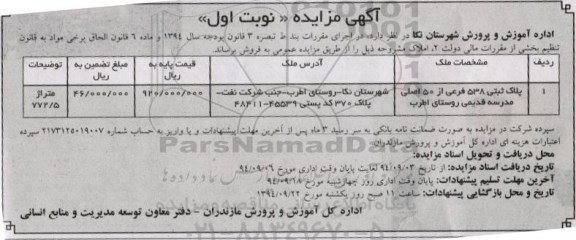 آگهی مزایده « نوبت اول»
اداره آموزش و پرورش شهرستان نکا در نظر دارد، در اجرای مقررات بند ط تبصره ۳ قانون بودجه سال ۱۳۹٤ و ماده ۶ قانون الحاق برخی مواد به قانون
تنظیم بخشی از مقررات مالی دولت ۲، املاک مشروحه ذیل را از طریق مزایده عمومی به فروش برساند.
ردیف مشخصات ملک آدرس ملک قیمت پایه به ریال مبلغ تضمین به ریال توضیحات
۱ پلاک ثبتی ۵۳۸ فرعی از ۵۰ اصلی مدرسه قدیمی روستای اطرب شهرستان نکا-روستای اطرب-جنب شرکت نفت- پلاک ۳۷۰ کد پستی ۴۵۵۳۹-۴۸۴۱۱ ۹۲۰/۰۰۰/۰۰۰ ۴۶/۰۰۰/۰۰۰ متراژ ۷۷۲/۵
سپرده شرکت در مزایده به صورت ضمانت نامه بانکی به سر رسید ۳ ماه پس از آخرین مهلت پیشنهادات و یا واریز به حساب شماره ۲۱۷۳۱۲۵۰۱۹۰۰۷ سپرده
اعتبارات هزینه ای اداره کل آموزش و پرورش مازندران
محل دریافت و تحویل اسناد مزایده:
تاریخ دریافت اسناد مزایده: از تاریخ ۹۴/۰۹/۰۳ لغایت پایان وقت اداری مورخ ۹۴/۰۹/۰۶
آخرین مهلت تسلیم پیشنهادات: پایان وقت اداری روز چهارشنبه مورخ ۹۴/۰۹/۱۸
تاریخ و محل بازگشایی پیشنهادات: ساعت ۱۱ صبح روز یکشنبه مورخ ۱۳۹۴/۰۹/۲۲
اداره کل آموزش و پرورش مازندران - دفتر معاون توسعه مدیریت و منابع انسانی
ParsNamadData
۰۲۱-۸۸۳۴۹۶۷۰-۵